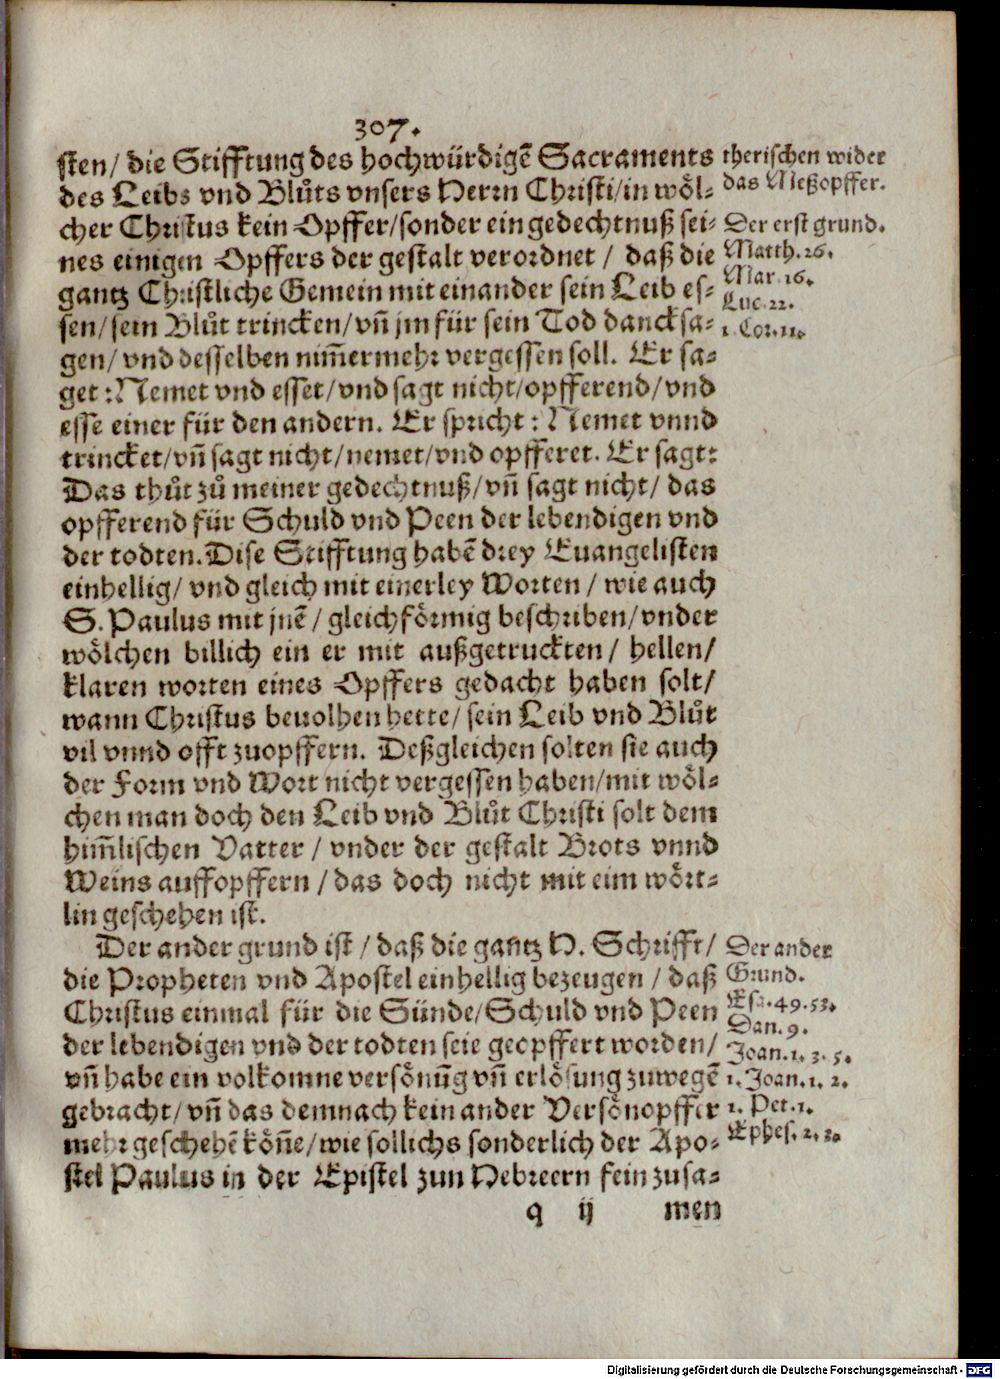 307.
sten/ die Stifftung des hochwürdigē Sacraments
des Leibs vnd Blůts vnsers Herrn Christi/in wöl-
cher Christus kein Opffer/sonder ein gedechtnuß sei-
nes einigen Opffers der gestalt verordnet / daß die
gantz Christliche Gemein mit einander sein Leib es-
sen/sein Blůt trincken/vñ jm für sein Tod dancksa-
gen/ vnd desselben nim̄ermehr vergessen soll. Er sa-
get : Nemet vnd esset/vnd sagt nicht/opfferend/vnd
esse einer für den andern. Er spricht : Nemet vnnd
trincket/vñ sagt nicht/nemet/vnd opfferet. Er sagt:
Das thůt zů meiner gedechtnuß/vñ sagt nicht/ das
opfferend für Schuld vnd Peen der lebendigen vnd
der todten. Dise Stifftung habē drey Euangelisten
einhellig/ vnd gleich mit einerley Worten / wie auch
S. Paulus mit jnē / gleichförmig beschriben/vnder
wölchen billich ein er mit außgetruckten/ hellen/
klaren worten eines Opffers gedacht haben solt/
wann Christus beuolhen hette/ sein Leib vnd Blůt
vil vnnd offt zuopffern. Deßgleichen solten sie auch
der Form vnd Wort nicht vergessen haben/mit wöl-
chen man doch den Leib vnd Blůt Christi solt dem
him̄lischen Vatter / vnder der gestalt Brots vnnd
Weins auffopffern / das doch nicht mit eim wört-
lin geschehen ist.
Der ander grund ist / daß die gantz H. Schrifft/
die Propheten vnd Apostel einhellig bezeugen / daß
Christus einmal für die Sünde/Schuld vnd Peen
der lebendigen vnd der todten seie geopffert worden/
vñ habe ein volkomne versönūg vñ erlösung zuwegē
gebracht/vñ das demnach kein ander Versönopffer
mehr geschehē köñe/wie sollichs sonderlich der Apo-
stel Paulus in der Epistel zun Hebreern fein zusa-
q ij men
therischen wider
das Meßopffer.
Der erst grund.
Matth. 26.
Mar. 16.
Luc. 22.
1. Cor. 11.
Der ander
Grund.
Esa. 49. 53.
Dan. 9.
Joan. 1. 3. 5.
1. Joan. 1. 2.
1. Pet. 1.
Ephes. 2. 3.
Digitalisierung gefördert durch die Deutsche Forschungsgemeinschaft - DFG